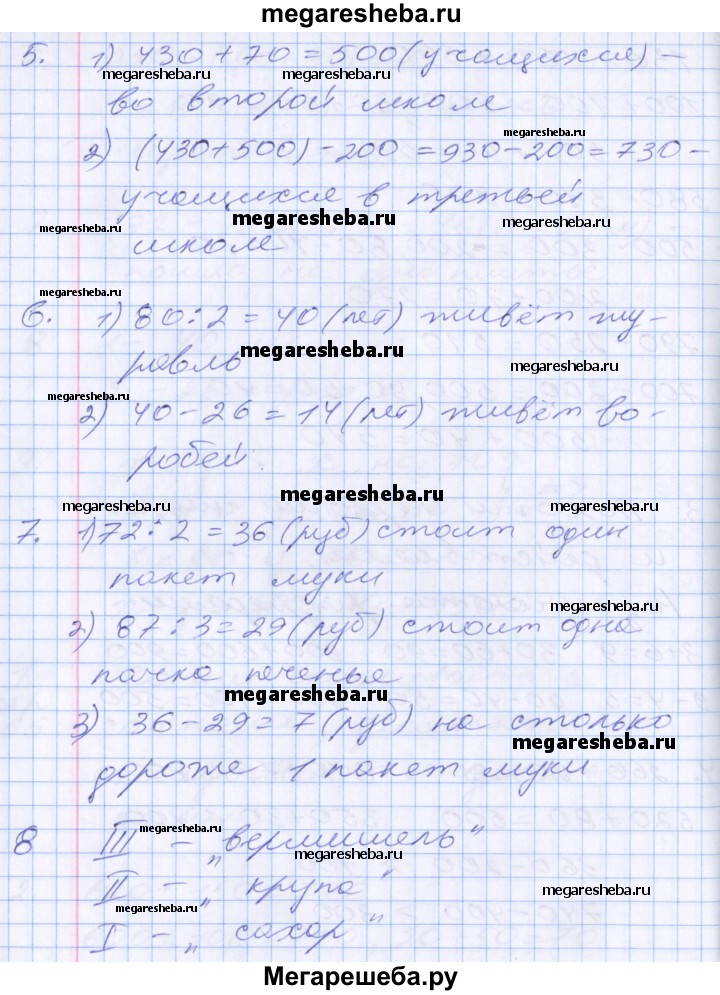 megaresheba.ru
5. 1) 430 + 70 = 500 (учащихся) –
megaresheba.ru megaresheba.ru
во второй школе
megaresheba.ru
2) (430+500) - 200 = 930 - 200 = 730 -
учащихся в третьей
megaresheba.ru megaresheba.ru megaresheba.ru
школе
megaresheba.ru
6. 1) 80 : 2 = 40 (лет) живёт жу-
megaresheba.ru megaresheba.ru
равль
megaresheba.ru
2) 40 - 26 = 14 (лет) живёт во-
робей.
megaresheba.ru
megaresheba.ru megaresheba.ru
7. 1) 72 : 2 = 36 (руб) стоит один
пакет муки
megaresheba.ru
2) 87 : 3 = 29 (руб) стоит одна
пачка печенья
megaresheba.ru
3) 36 - 29 = 7 (руб) на столько
megaresheba.ru
дороже 1 пакет муки
megaresheba.ru
8 III – „вермишель"
megaresheba.ru
II – „крупа"
megaresheba.ru megaresheba.ru
I – „сахар"
Мегарешеба.ру